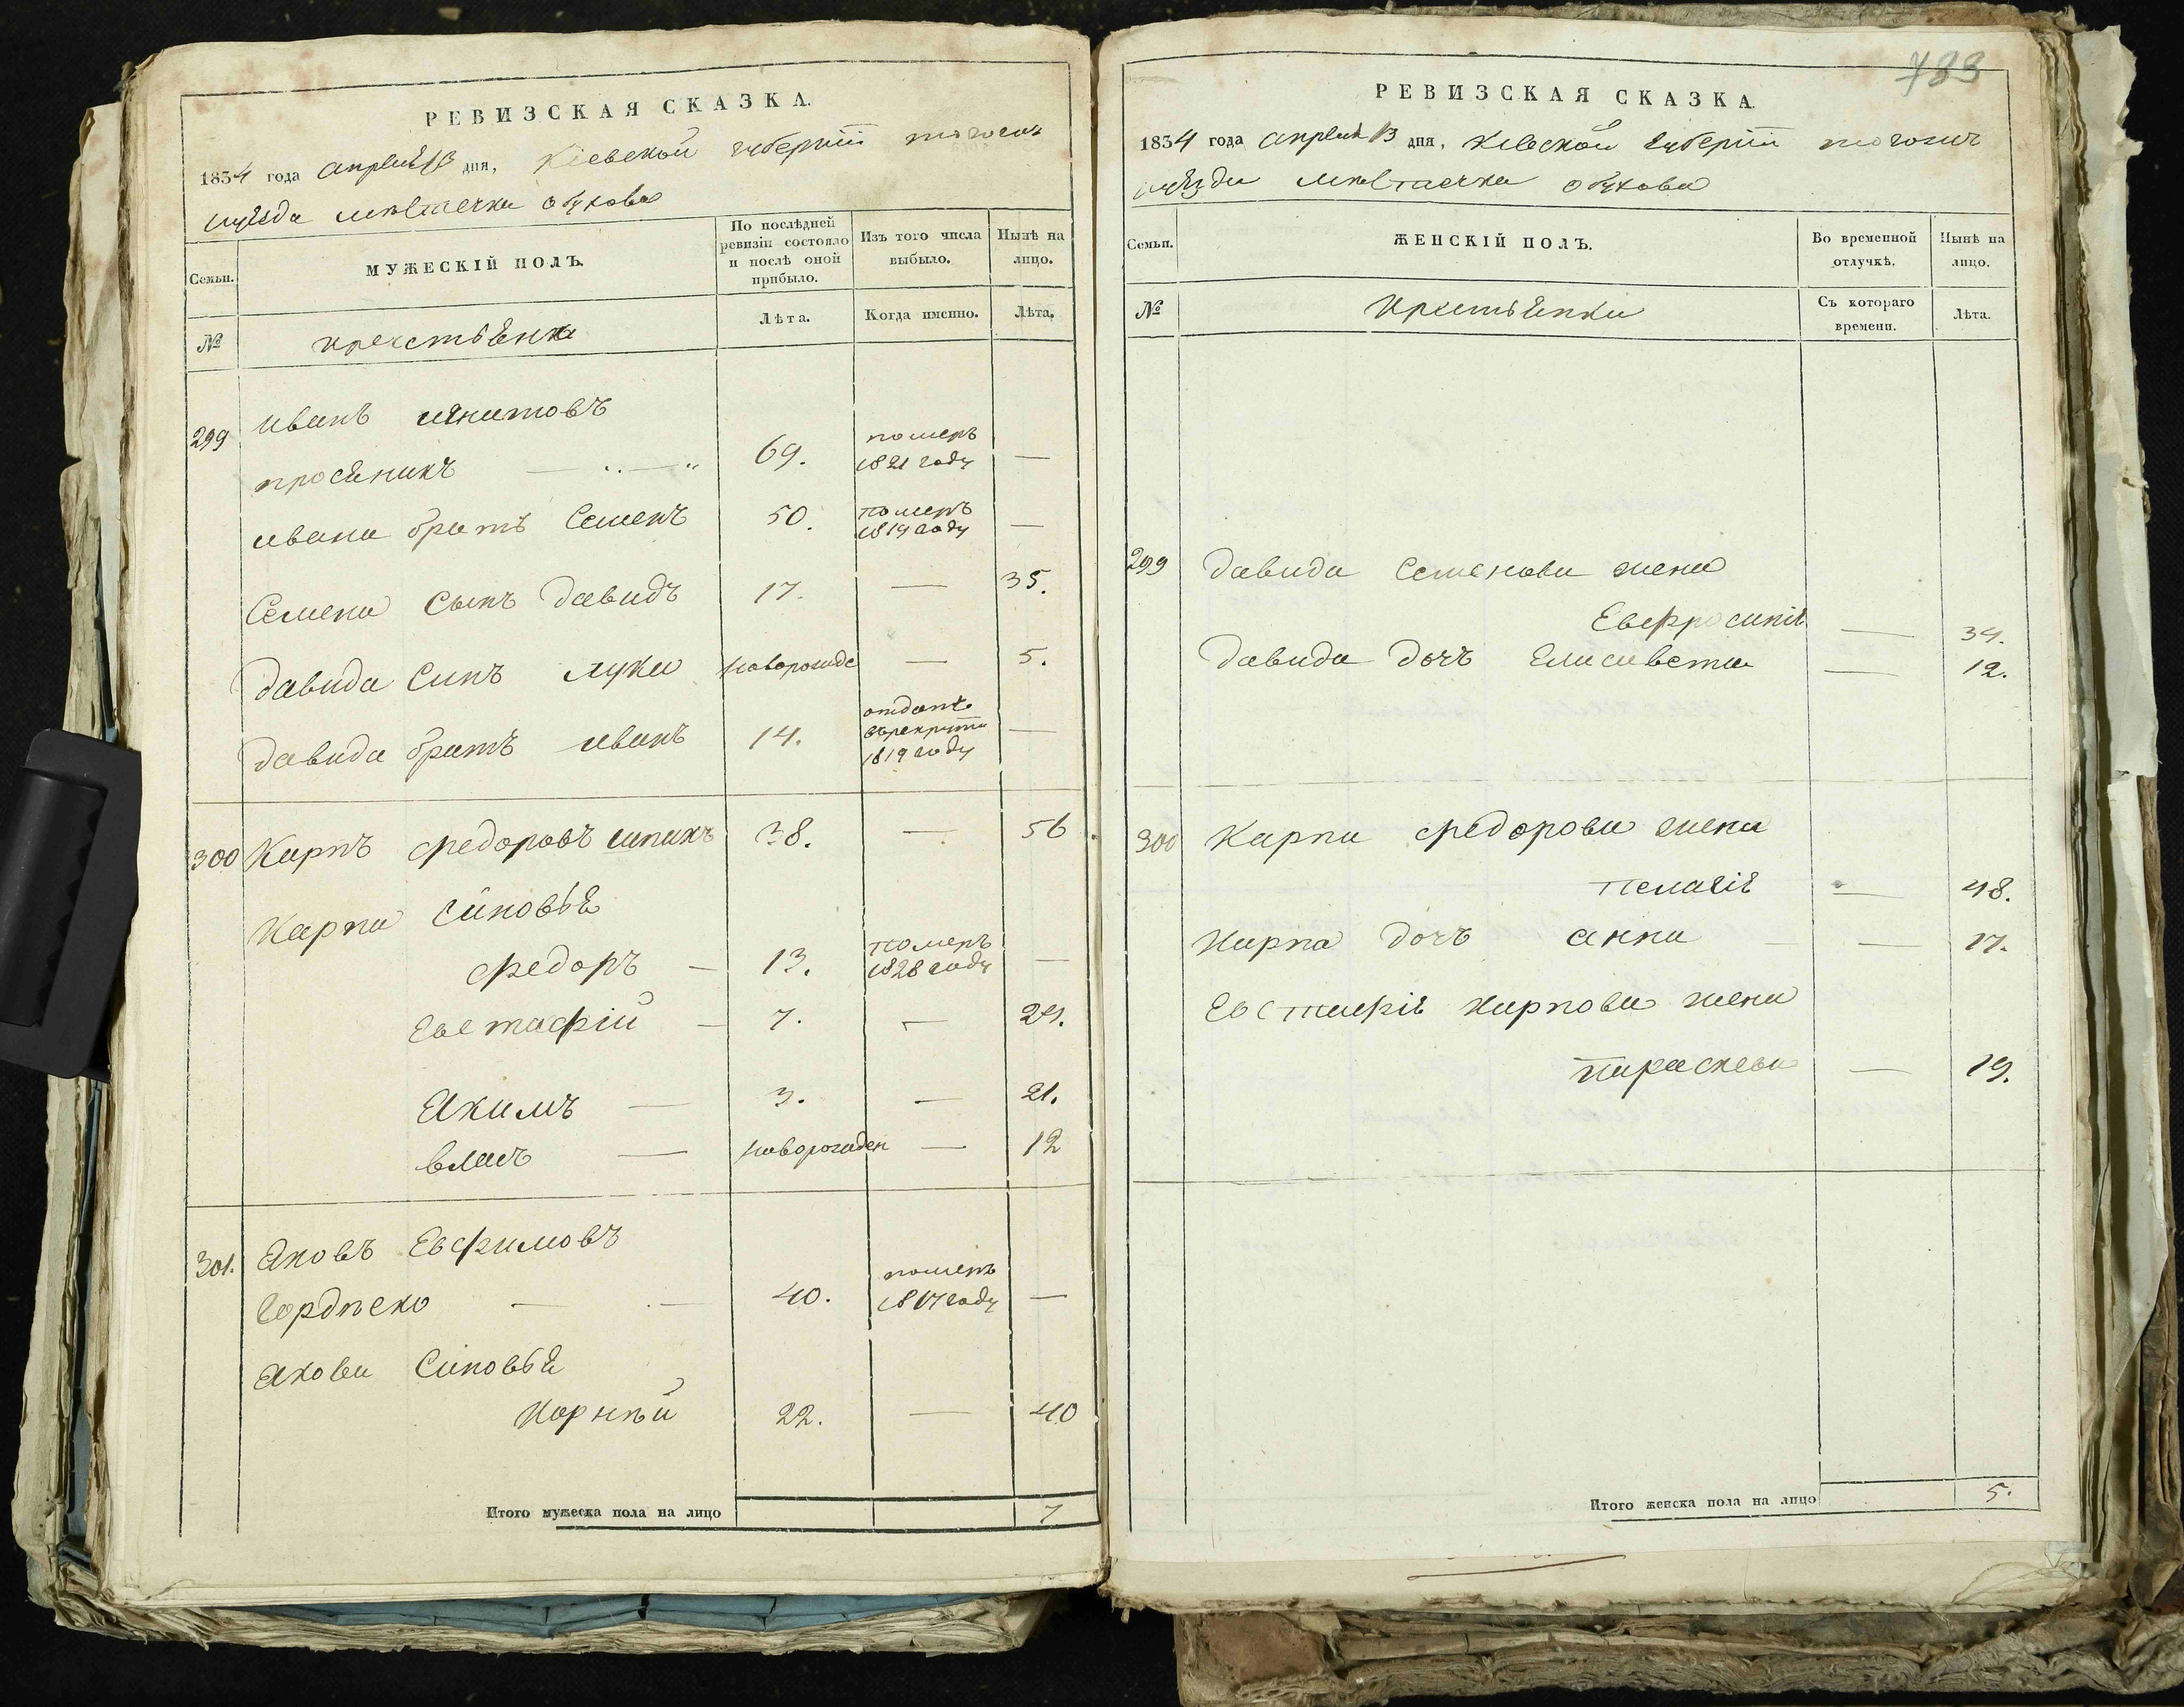 РЕВИЗСКАЯ СКАЗКА.
1834 года апреля 13 дня, Кіевской губерніи тогожъ
уѣзда местаечка обухова
Семьи.
МУЖЕСКІЙ ПОЛЪ.
По послѣдней ревизіи состояло и послѣ оной прибыло.
Изъ того числа выбыло.
Нынѣ на лицо.
№
крестьяне
Лѣта.
Когда именно.
Лѣта.
299 иванъ
просяникъ — „ — „ 69. померъ 1821 году —
ивана братъ Семенъ 50. померъ 1819 году —
Семена Сынъ давидъ 17. — 35.
давида Синъ лука новорожде — 5.
давида братъ иванъ 14. отданъ врекруты 1819 году —
300 Карпъ федоровъ 38. — 56
Карпа Синовья
федоръ — 13. померъ 1828 году —
Евстафій — 7. — 24.
Якимъ — 3. — 21.
власъ — новорожден — 12
301. Яковъ Евфимовъ
40. померъ 1817 году —
Якова Синовья
Корнѣй 22. — 40
Итого мужеска пола на лицо 7
783
РЕВИЗСКАЯ СКАЗКА.
1834 года апреля 13 дня, Кіевской губерніи тогожъ
уѣзда местаечка обухова
Семьи.
ЖЕНСКІЙ ПОЛЪ.
Во временной отлучкѣ.
Нынѣ на лицо.
№
крестьянки
Съ котораго времени.
Лѣта.
299 давида Семенова жена
Евфросинія — 34.
давида дочъ Елисавета — 12.
300 Карпа федорова жена
пелагія — 48.
Карпа дочъ анна — 17.
Евстафія карпова жена
параскева — 19.
Итого женска пола на лицо 5.